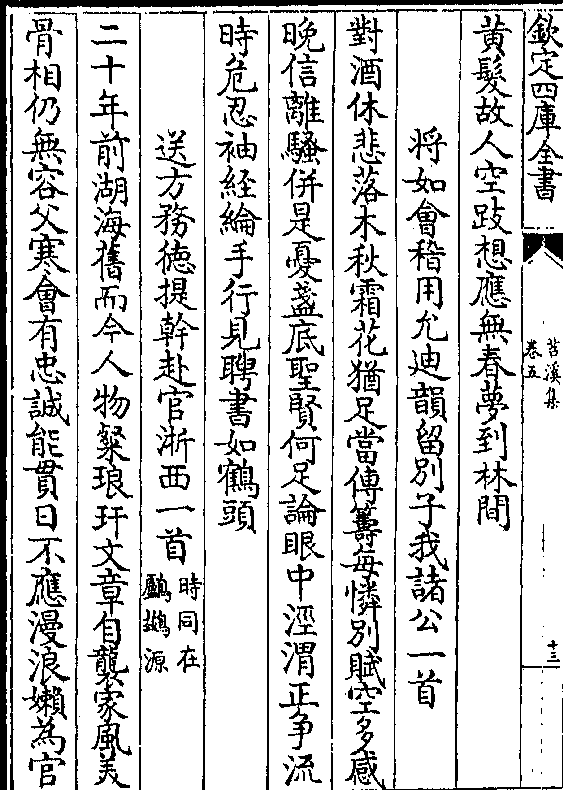 欽定四庫全書
苕溪集
卷五
十三
黄髮故人空跂想應無春夢到林間
將如會稽用允迪韻留別子我諸公一首
對酒休悲落木秋霜花猶足當傳籌每憐別賦空多感
晚信離騷併是憂盞底聖賢何足論眼中涇渭正争流
時危忍袖経綸手行見聘書如鶴頭
送方務徳提幹赴官浙西一首
時同在
鸕鷀源
二十年前湖海舊而今人物粲琅玕文章自襲家風美
骨相仍無容父寒會有忠誠能貫日不應漫浪嬾為官